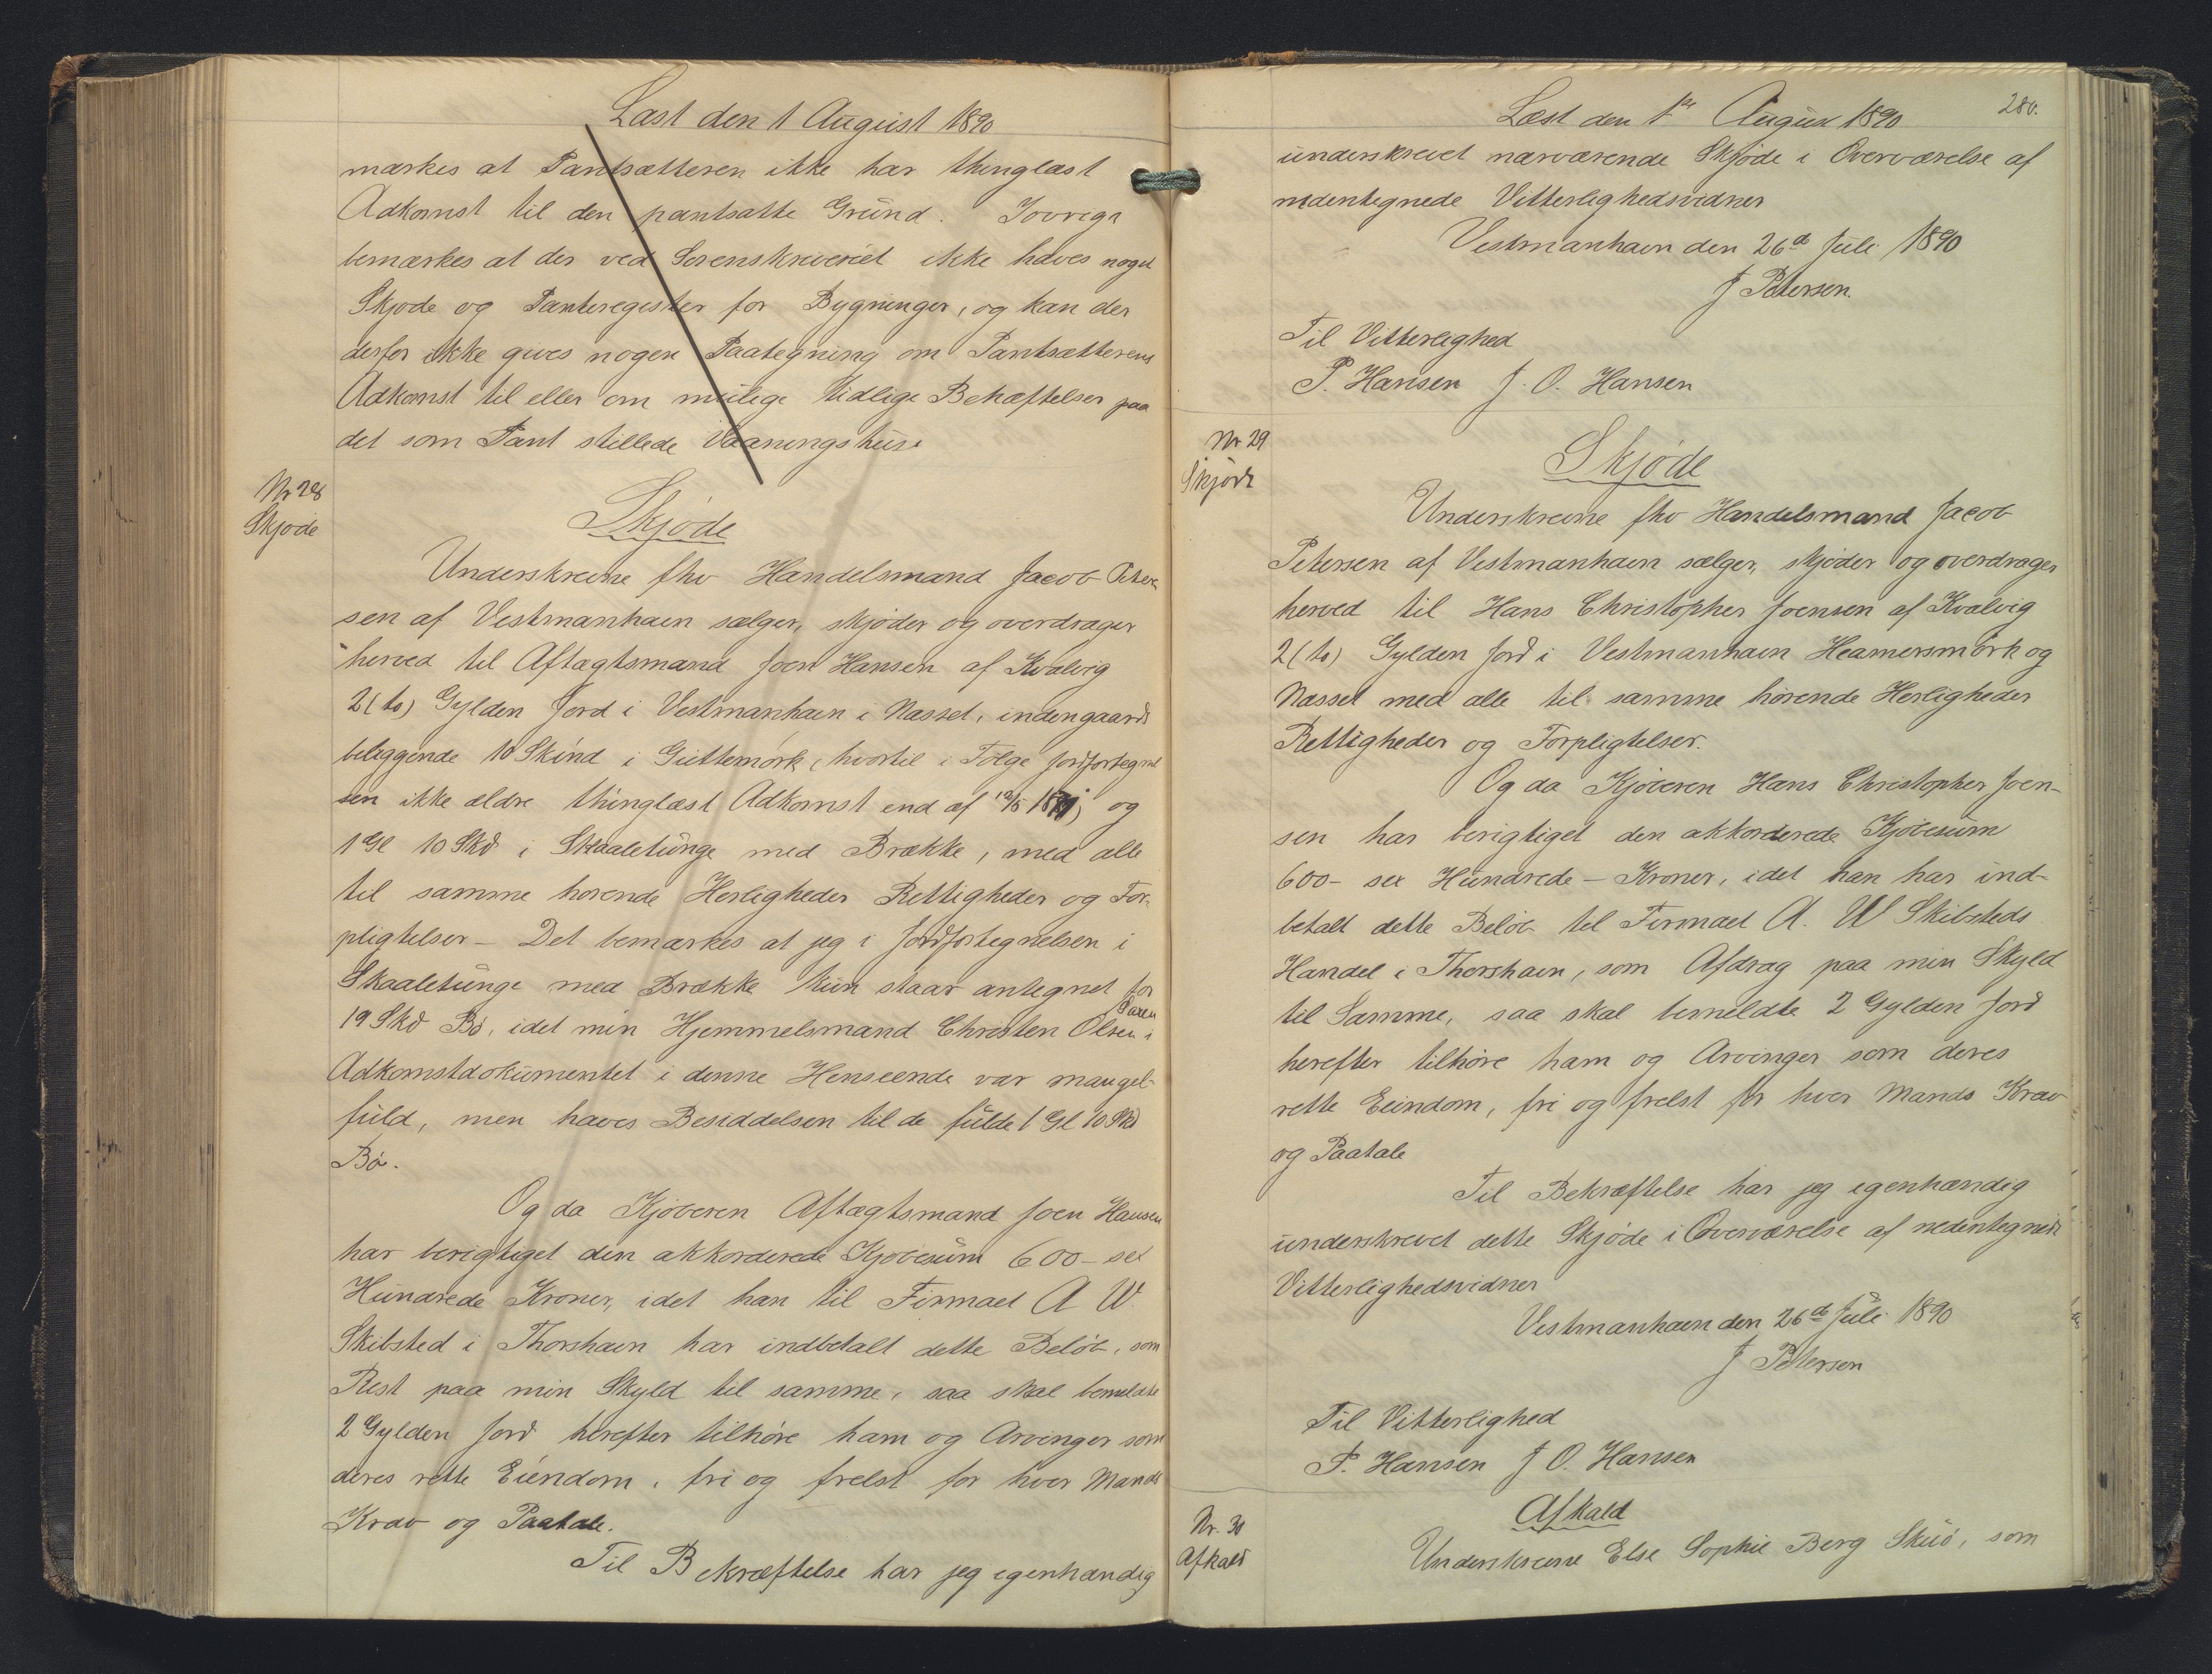 Læst den 1 August 1890
mærkes at Pantsætteren ikke har thinglæst
Adkomst til den pantsatte Grund. Iøvrigt
bemærkes at der ved Sorenskriveriet ikke haves noget
Skjøde og Panteregister for Bygninger, og kan der
derfor ikke gives nogen Paategning om Pantsætterens
Adkomst til eller om mulige tidlige Behæftelser paa
det som Pant stillede Vaaningshuse
Nr 28
Skjøde
Skjøde
Underskrevne fhv Handelsmand Jacob Peter
sen af Vestmanhavn sælger, skjøder og overdrager
herved til Aftægtsmand Joen Hansen af Kvalvig
2 (to) Gylden Jord i Vestmanhavn i Næsset, indengaards
beliggende 10 Skind i Guttemørk, hvortil i Følge Jordfortegnel
sen ikke ældre thinglæst Adkomst end af og
1 Gl 10 Skd i Skaaletunge med Brække, med alle
til samme hørende Herligheder Rettigheder og For-
pligtelser – Det bemærkes at jeg i Jordfortegnelsen i
Skaaletunge med Brække kun staar antegnet for
19 Skd Bø, idet min Hjemmelsmand Christen Olsen i
Adkomstdokumentet i denne Henseende var mangel-
fuld, men haves Besiddelsen til de fulde 1 Gl 10 Skd
Bø.
Og da Kjøberen Aftægtsmand Joen Hansen
har berigtiget den akkorderede Kjøbesum 600 – sex
Hundrede Kroner, idet han til Firmaet A W.
Skibsted i Thorshavn har indbetalt dette Beløb, som
Rest paa min Skyld til samme, saa skal bemeldte
2 Gylden Jord herefter tilhøre ham og Arvinger som
deres rette Eiendom, fri og frelst for hver Mands
Krav og Paatale.
Til Bekræftelse har jeg egenhændig
280.
Læst den 1ste August 1890
underskrevet nærværende Skjøde i Overværelse af
nedentegnede Vitterlighedsvidner
Vestmanhavn den 26de Juli 1890
J Petersen.
Til Vitterlighed
P. Hansen J. O. Hansen
Nr 29
Skjøde
Skjøde
Underskrevne fhv Handelsmand Jacob
Petersen af Vestmanhavn sælger, skjøder og overdrager
herved til Hans Christopher Joensen af Kvalvig
2 (to) Gylden Jord i Vestmanhavn Heamersmørk og
Næsset med alle til samme hørende Herligheder
Rettigheder og Forpligtelser.
Og da Kjøberen Hans Christopher Joen-
sen har berigtiget den akkorderede Kjøbesum
600 – sex Hundrede – Kroner, idet han har ind-
betalt dette Beløb til Firmaet A. W Skibsteds
Handel i Thorshavn, som Afdrag paa min Skyld
til Samme, saa skal bemeldte 2 Gylden Jord
herefter tilhøre ham og Arvinger som deres
rette Eiendom, fri og frelst for hver Mands Krav
og Paatale
Til Bekræftelse har jeg egenhændig
underskrevet dette Skjøde i Overværelse af nedentegnede
Vitterlighedsvidner
Vestmanhavn den 26de Juli 1890
J Petersen
Til Vitterlighed
P. Hansen J O. Hansen
Nr. 30
Afkald
Afkald
Underskrevne Else Sophie Berg Skuø, som